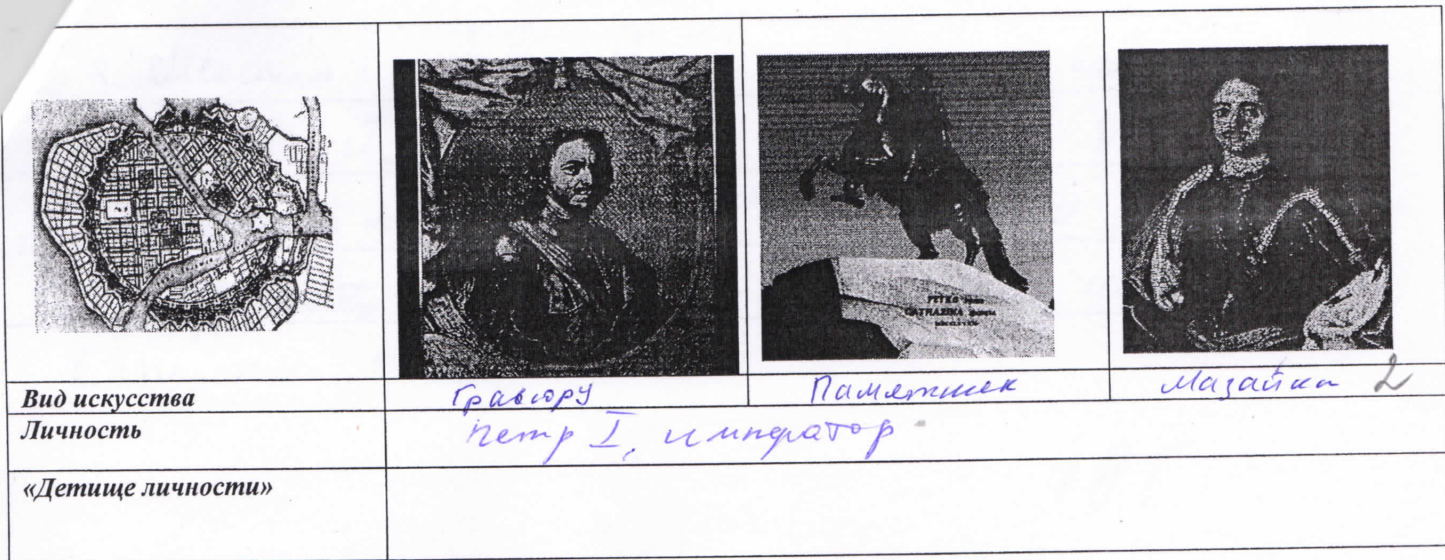 PETRO
CATHARINA
Вид искусства Гравюру Памятник Мазайка 2
Личность Петр I, император
«Детище личности»